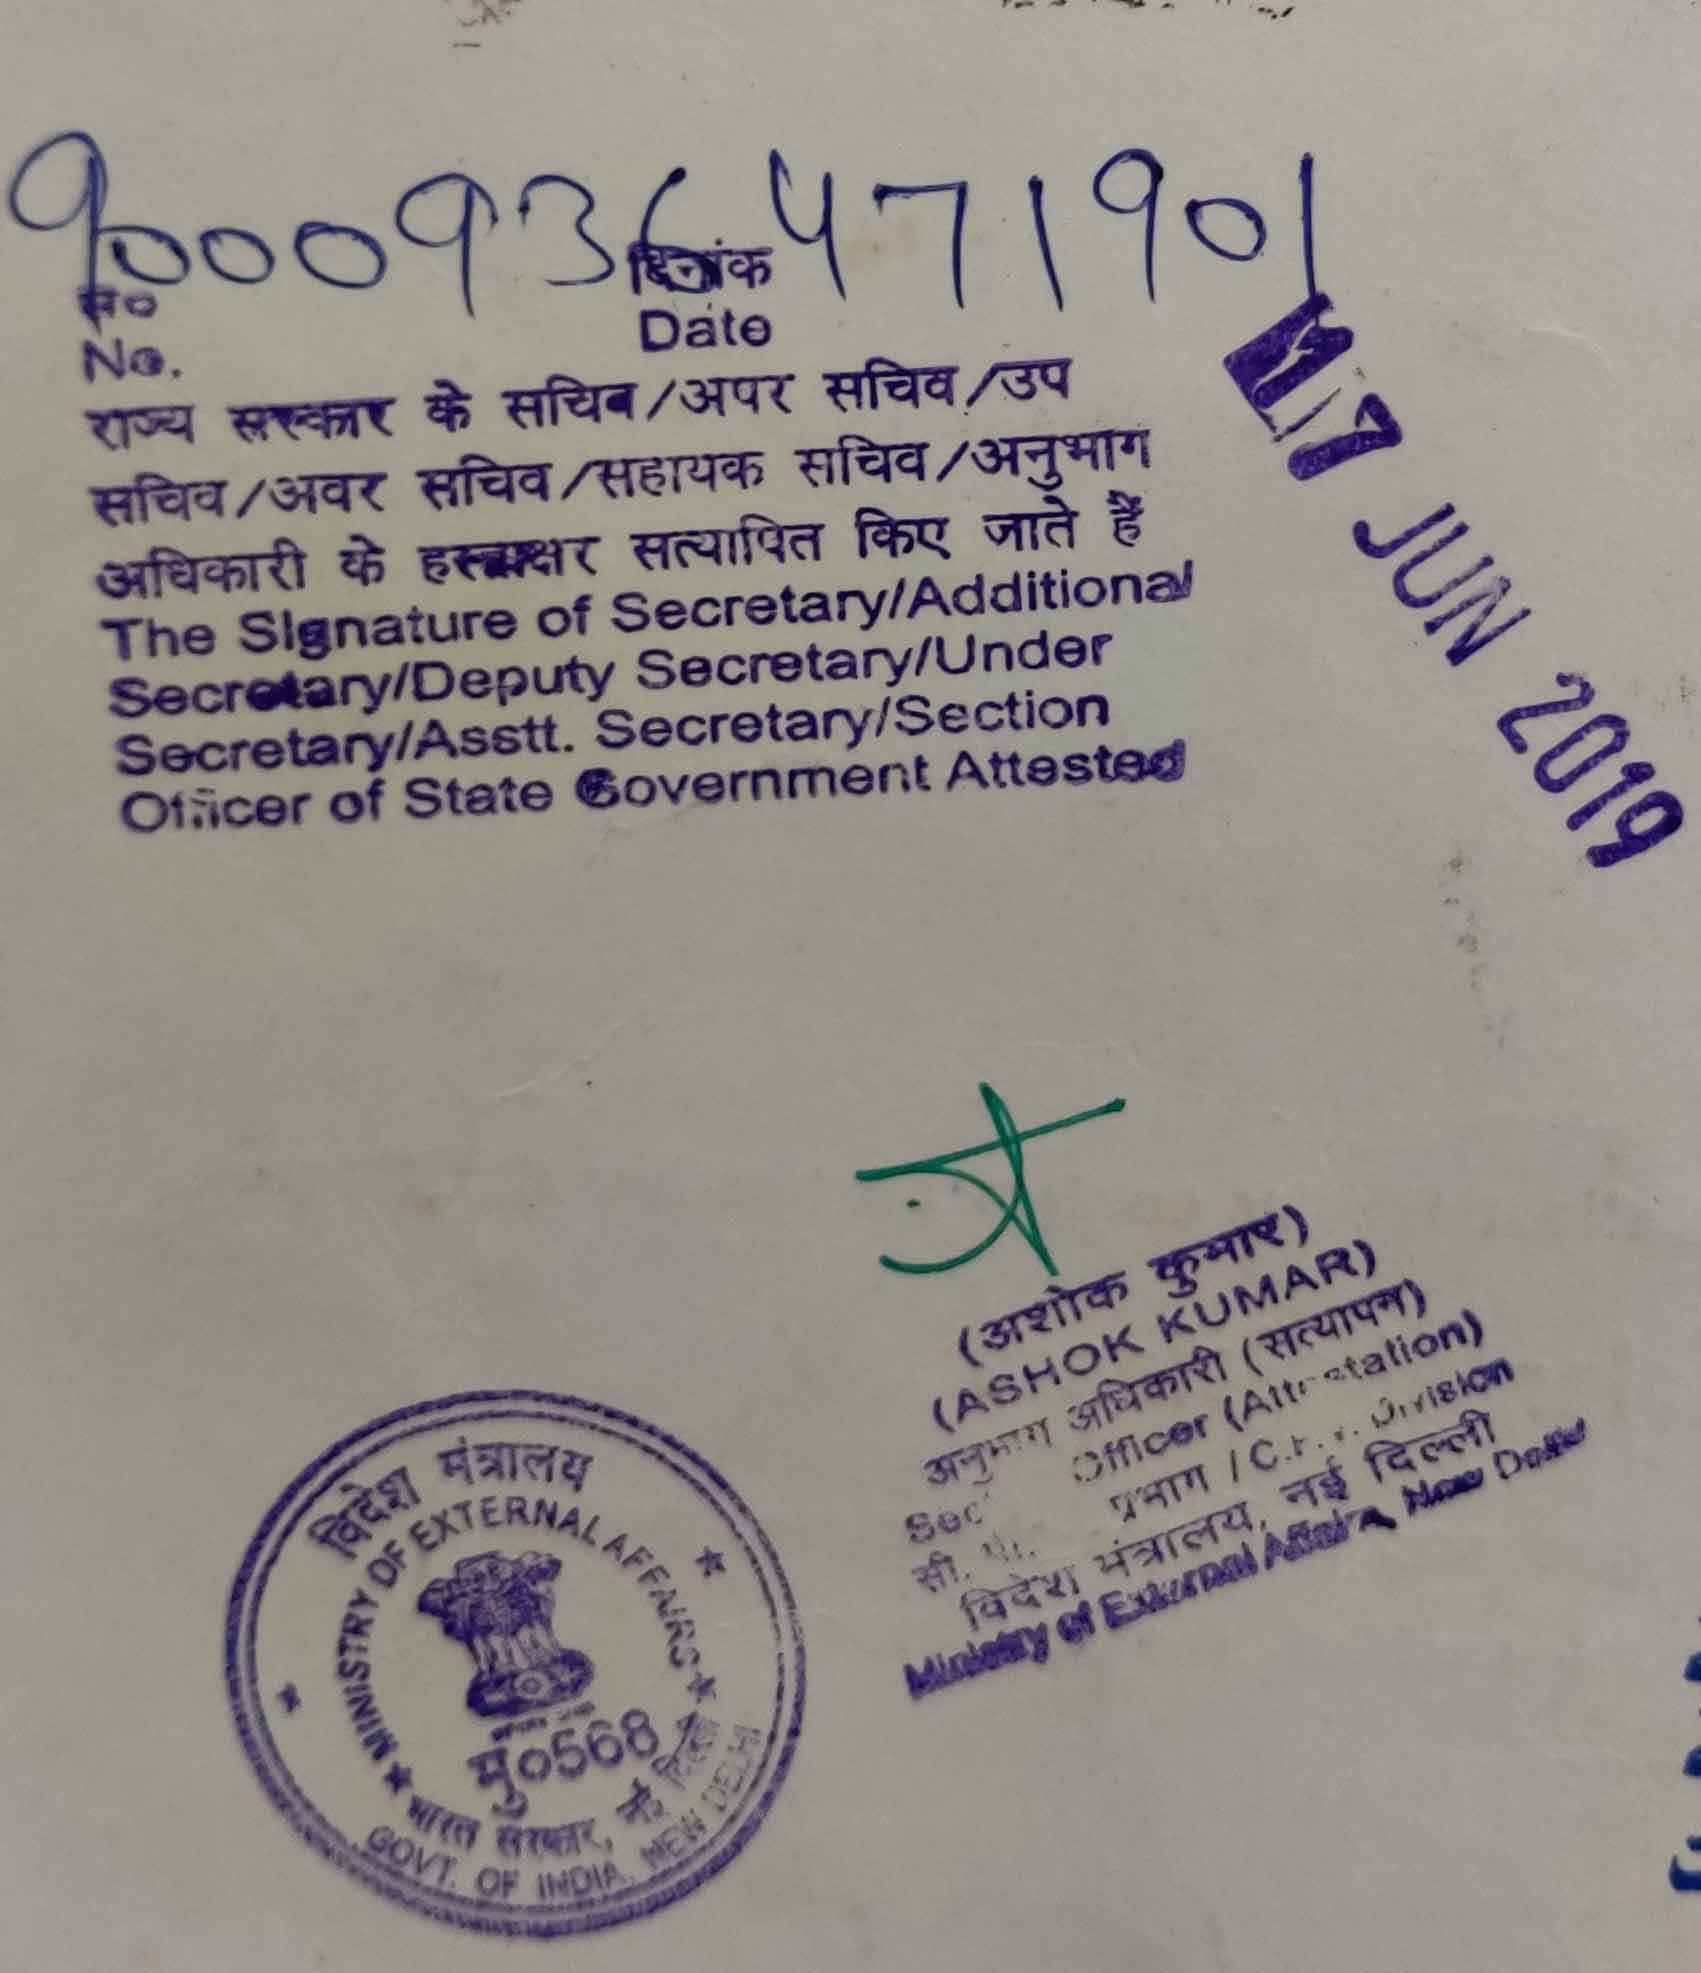 9000936471901
सं० दिनांक
No. Date
राज्य सरकार के सचिव/अपर सचिव/उप
सचिव/अवर सचिव/सहायक सचिव/अनुभाग
अधिकारी के हस्ताक्षर सत्यापित किए जाते हैं
The Signature of Secretary/Additional
Secretary/Deputy Secretary/Under
Secretary/Asstt. Secretary/Section
Officer of State Government Attested
JUN 2019
(अशोक कुमार)
(ASHOK KUMAR)
अनुभाग अधिकारी (सत्यापन)
Officer (Attestation)
प्रभाग / Division
विदेश मंत्रालय, नई दिल्ली
Ministry of External Affairs, New Delhi
विदेश मंत्रालय
MINISTRY OF EXTERNAL AFFAIRS
मु०568
भारत सरकार, नई दिल्ली
GOVT. OF INDIA, NEW DELHI